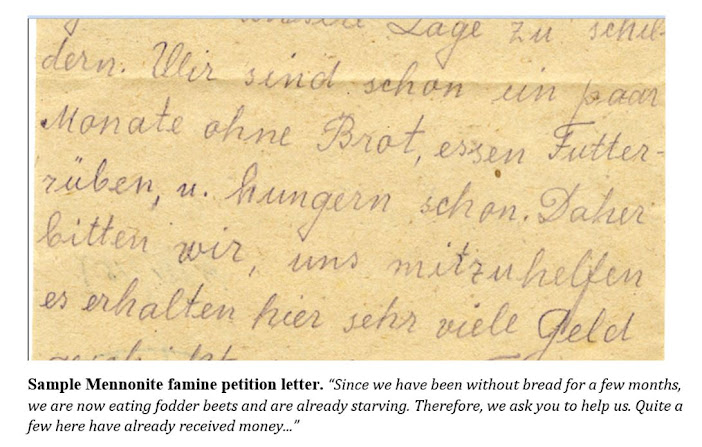 Lage zu schil-
dern. Wir sind schon ein paar
Monate ohne Brot, essen Futter-
rüben, u. hungern schon. Daher
bitten wir, uns mitzuhelfen
es erhalten hier sehr viele Geld
Sample Mennonite famine petition letter. “Since we have been without bread for a few months,
we are now eating fodder beets and are already starving. Therefore, we ask you to help us. Quite a
few here have already received money...”